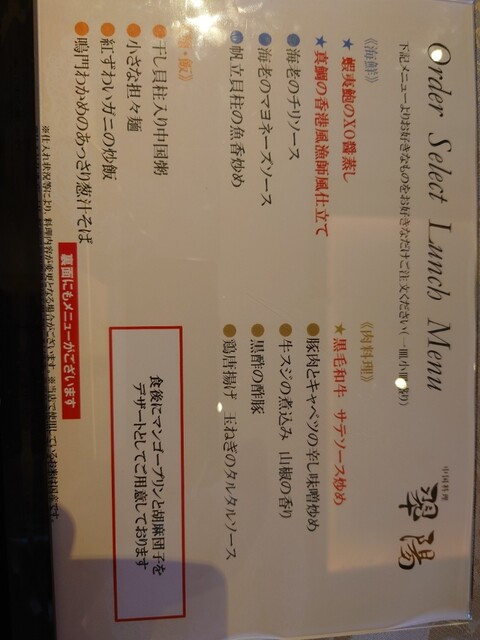 Order Select Lunch Menu
中国料理
翠湯
下記メニューよりお好きなものをお好きなだけご注文ください(一皿 小
《海鮮》
★蝦夷鮑のXO醬蒸し
★真鯛の香港風漁師風仕立て
●海老のチリソース
●海老のマヨネーズソース
●帆立貝柱の魚香炒め
・飯》
●干し貝柱入り中国粥
●小さな担々麺
●紅ずわいガニの炒飯
●鳴門わかめのあっさり葱汁そば
《肉料理》
★黒毛和牛 サテソース炒め
●豚肉とキャベツの辛し味噌炒め
●牛スジの煮込み 山椒の香り
●黒酢の酢豚
●鶏唐揚げ 玉ねぎのタルタルソース
食後にマンゴープリンと胡麻団子を
デザートとしてご用意しております
裏面にもメニューがございます
※仕入れ状況等により、料理内容が変更となる場合がございます。※当店で使用しているお米は国産です。